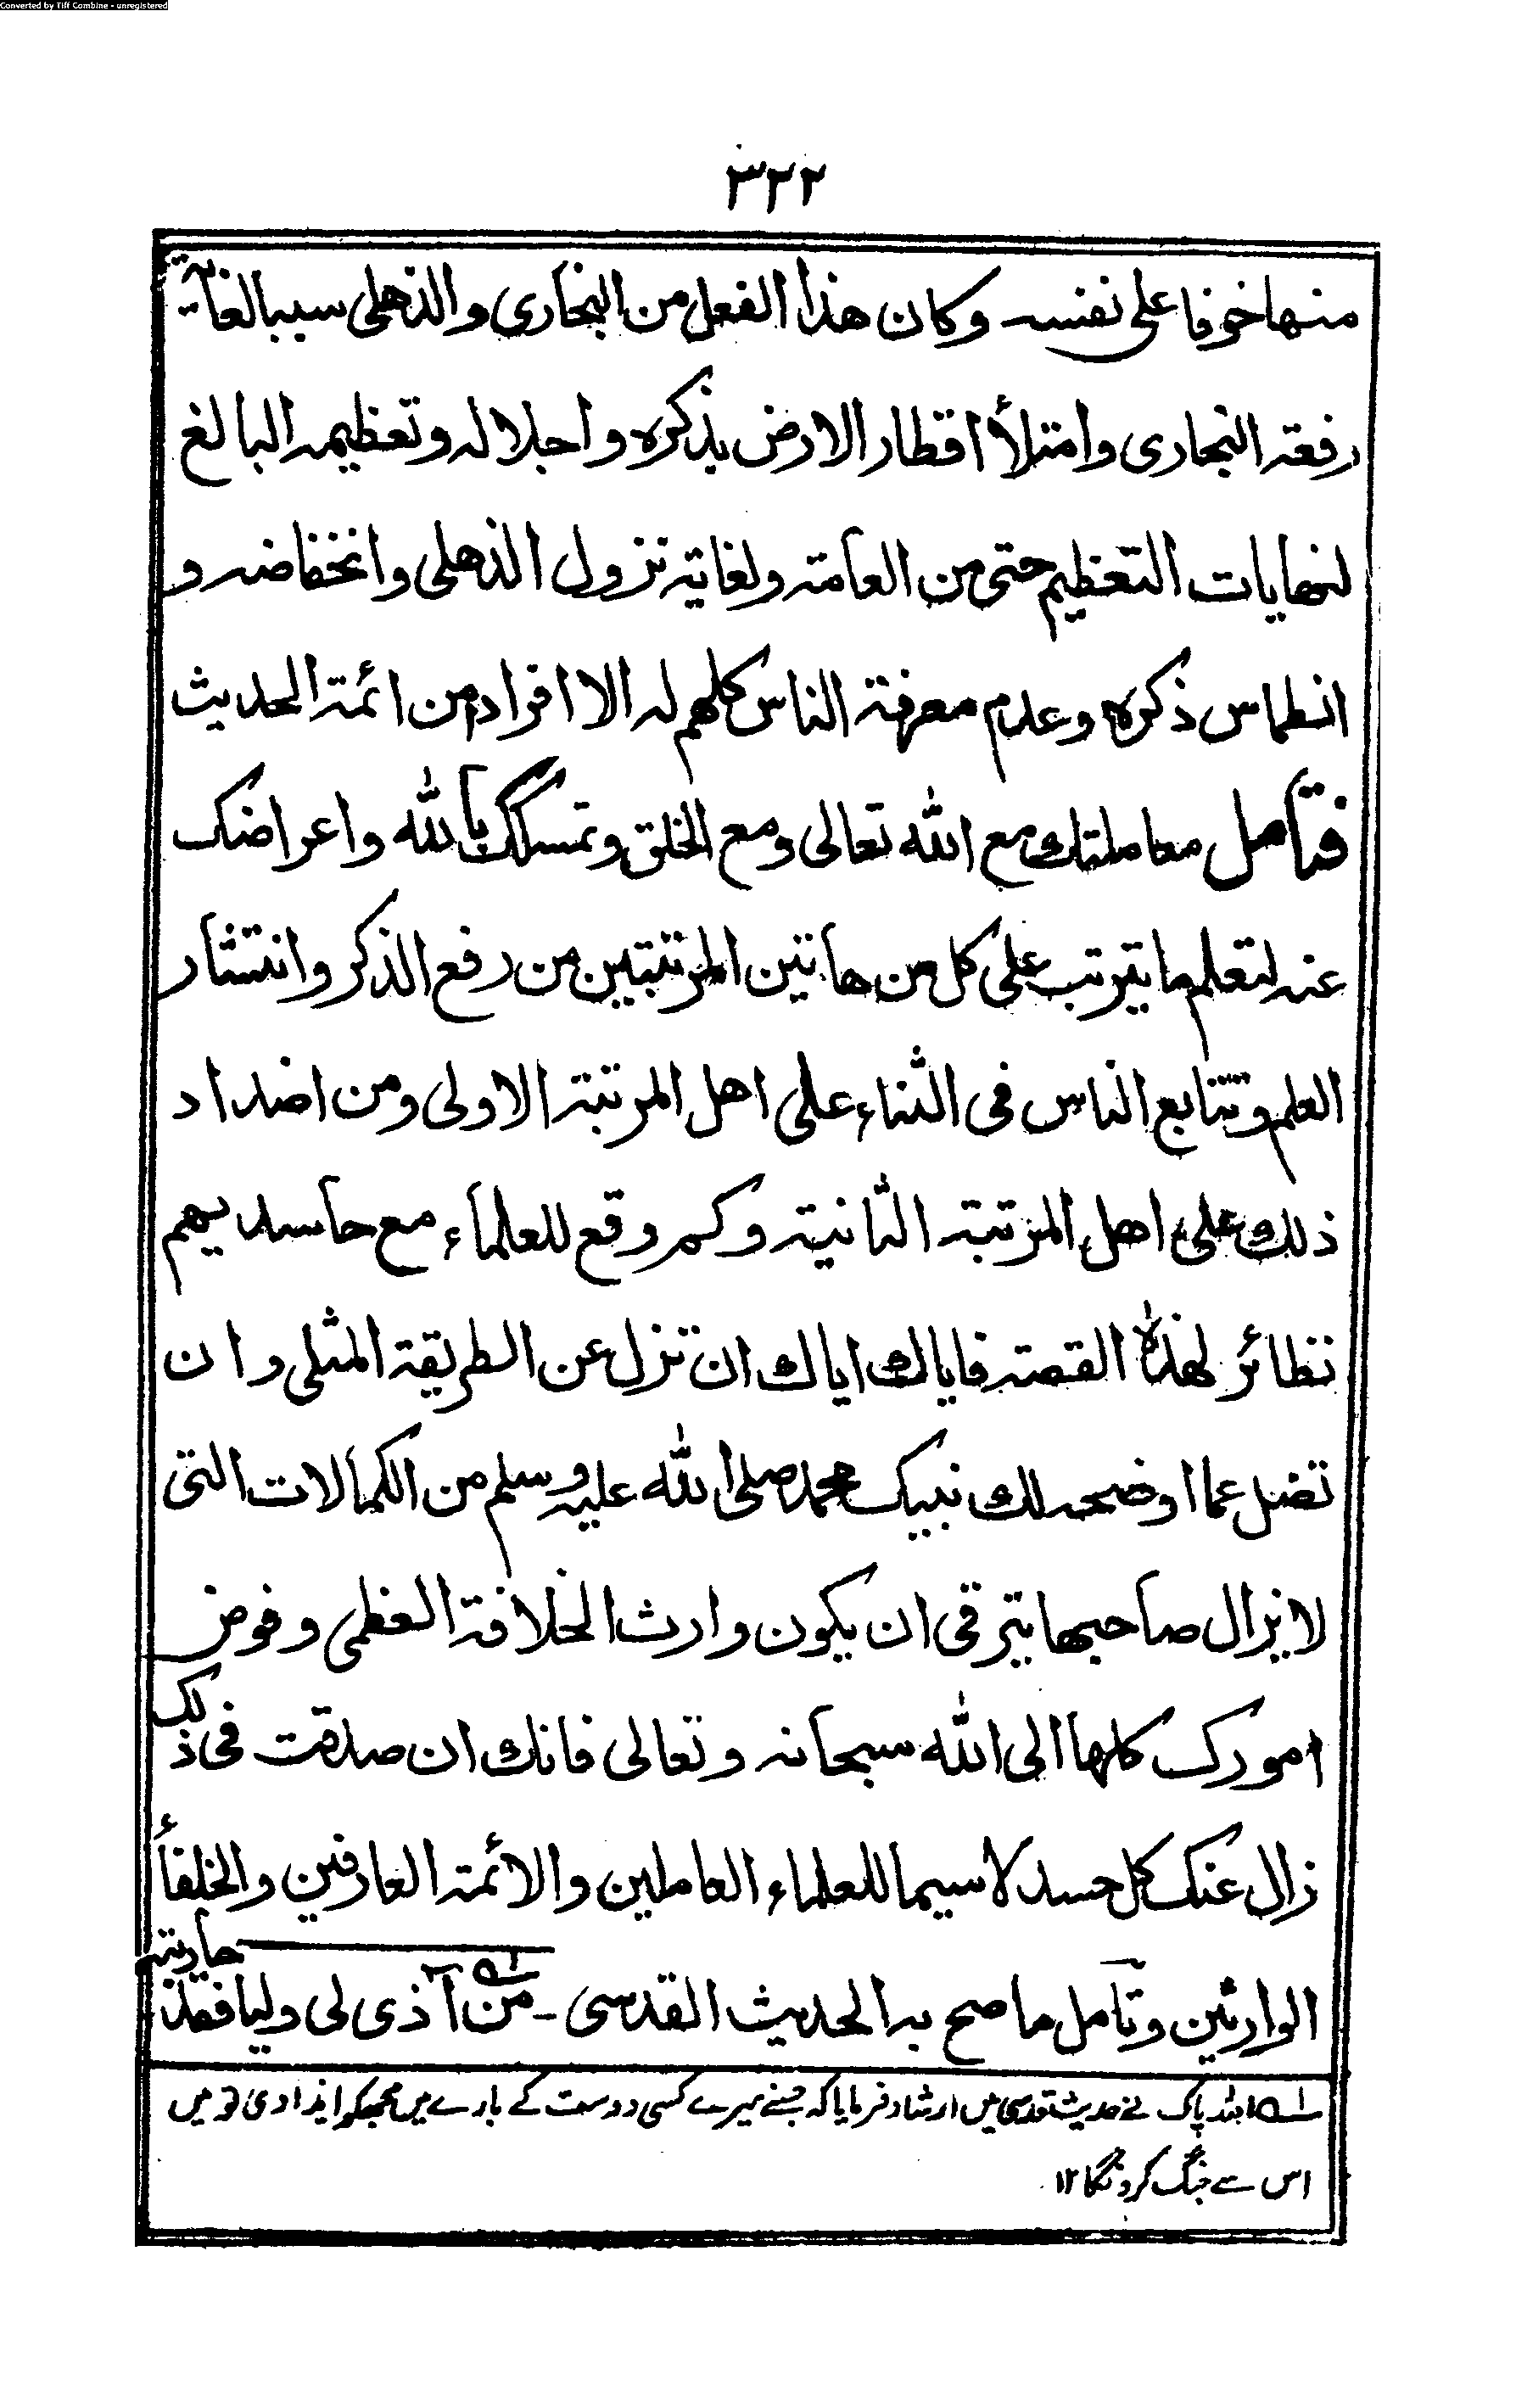 Converted by Tiff Combine - unregistered
٣٢٢
منها خوفا على نفسه وكان هذا الفعل من البخارى والذهلى سببا لغاية
رفعة البخارى وامتلأ اقطار الارض بذكره واجلاله وتعظيمه البالغ
لنهايات التعظيم حتى من العامة ولغاية نزول الذهلى وانخفاضه و
انطماس ذكره وعدم معرفة الناس كلهم له الا افراد من ائمة الحديث
فتأمل معاملتك مع الله تعالى ومع الخلق وتمسكك بالله واعراضك
عنه لتعلم ما يترتب على كل من هاتين المرتبتين من رفع الذكر وانتشار
العلم وتتابع الناس فى الثناء على اهل المرتبة الاولى ومن اضداد
ذلك على اهل المرتبة الثانية وكم وقع للعلماء مع حاسديهم
نظائر لهذه القصة فاياك اياك ان تنزل عن الطريقة المثلى وان
تضل عما اوضحه لك نبيك محمد صلى الله عليه وسلم من الكمالات التى
لا يزال صاحبها يترقى ان يكون وارث الخلافة العظمى وفوض
امورك كلها الى الله سبحانه وتعالى فانك ان صدقت فى ذلك
زال عنك كل حسد لا سيما للعلماء العاملين والائمة العارفين والخلفاء
الوارثين وتأمل ما صح به الحديث القدسى - من آذى لى وليا فقد حاربته
لہ اللہ پاک نے حدیث قدسی میں ارشاد فرمایا کہ جسنے میرے کسی دوست کے بارے میں مجھکو ایذا دی تو میں
اس سے جنگ کرونگا ١٢